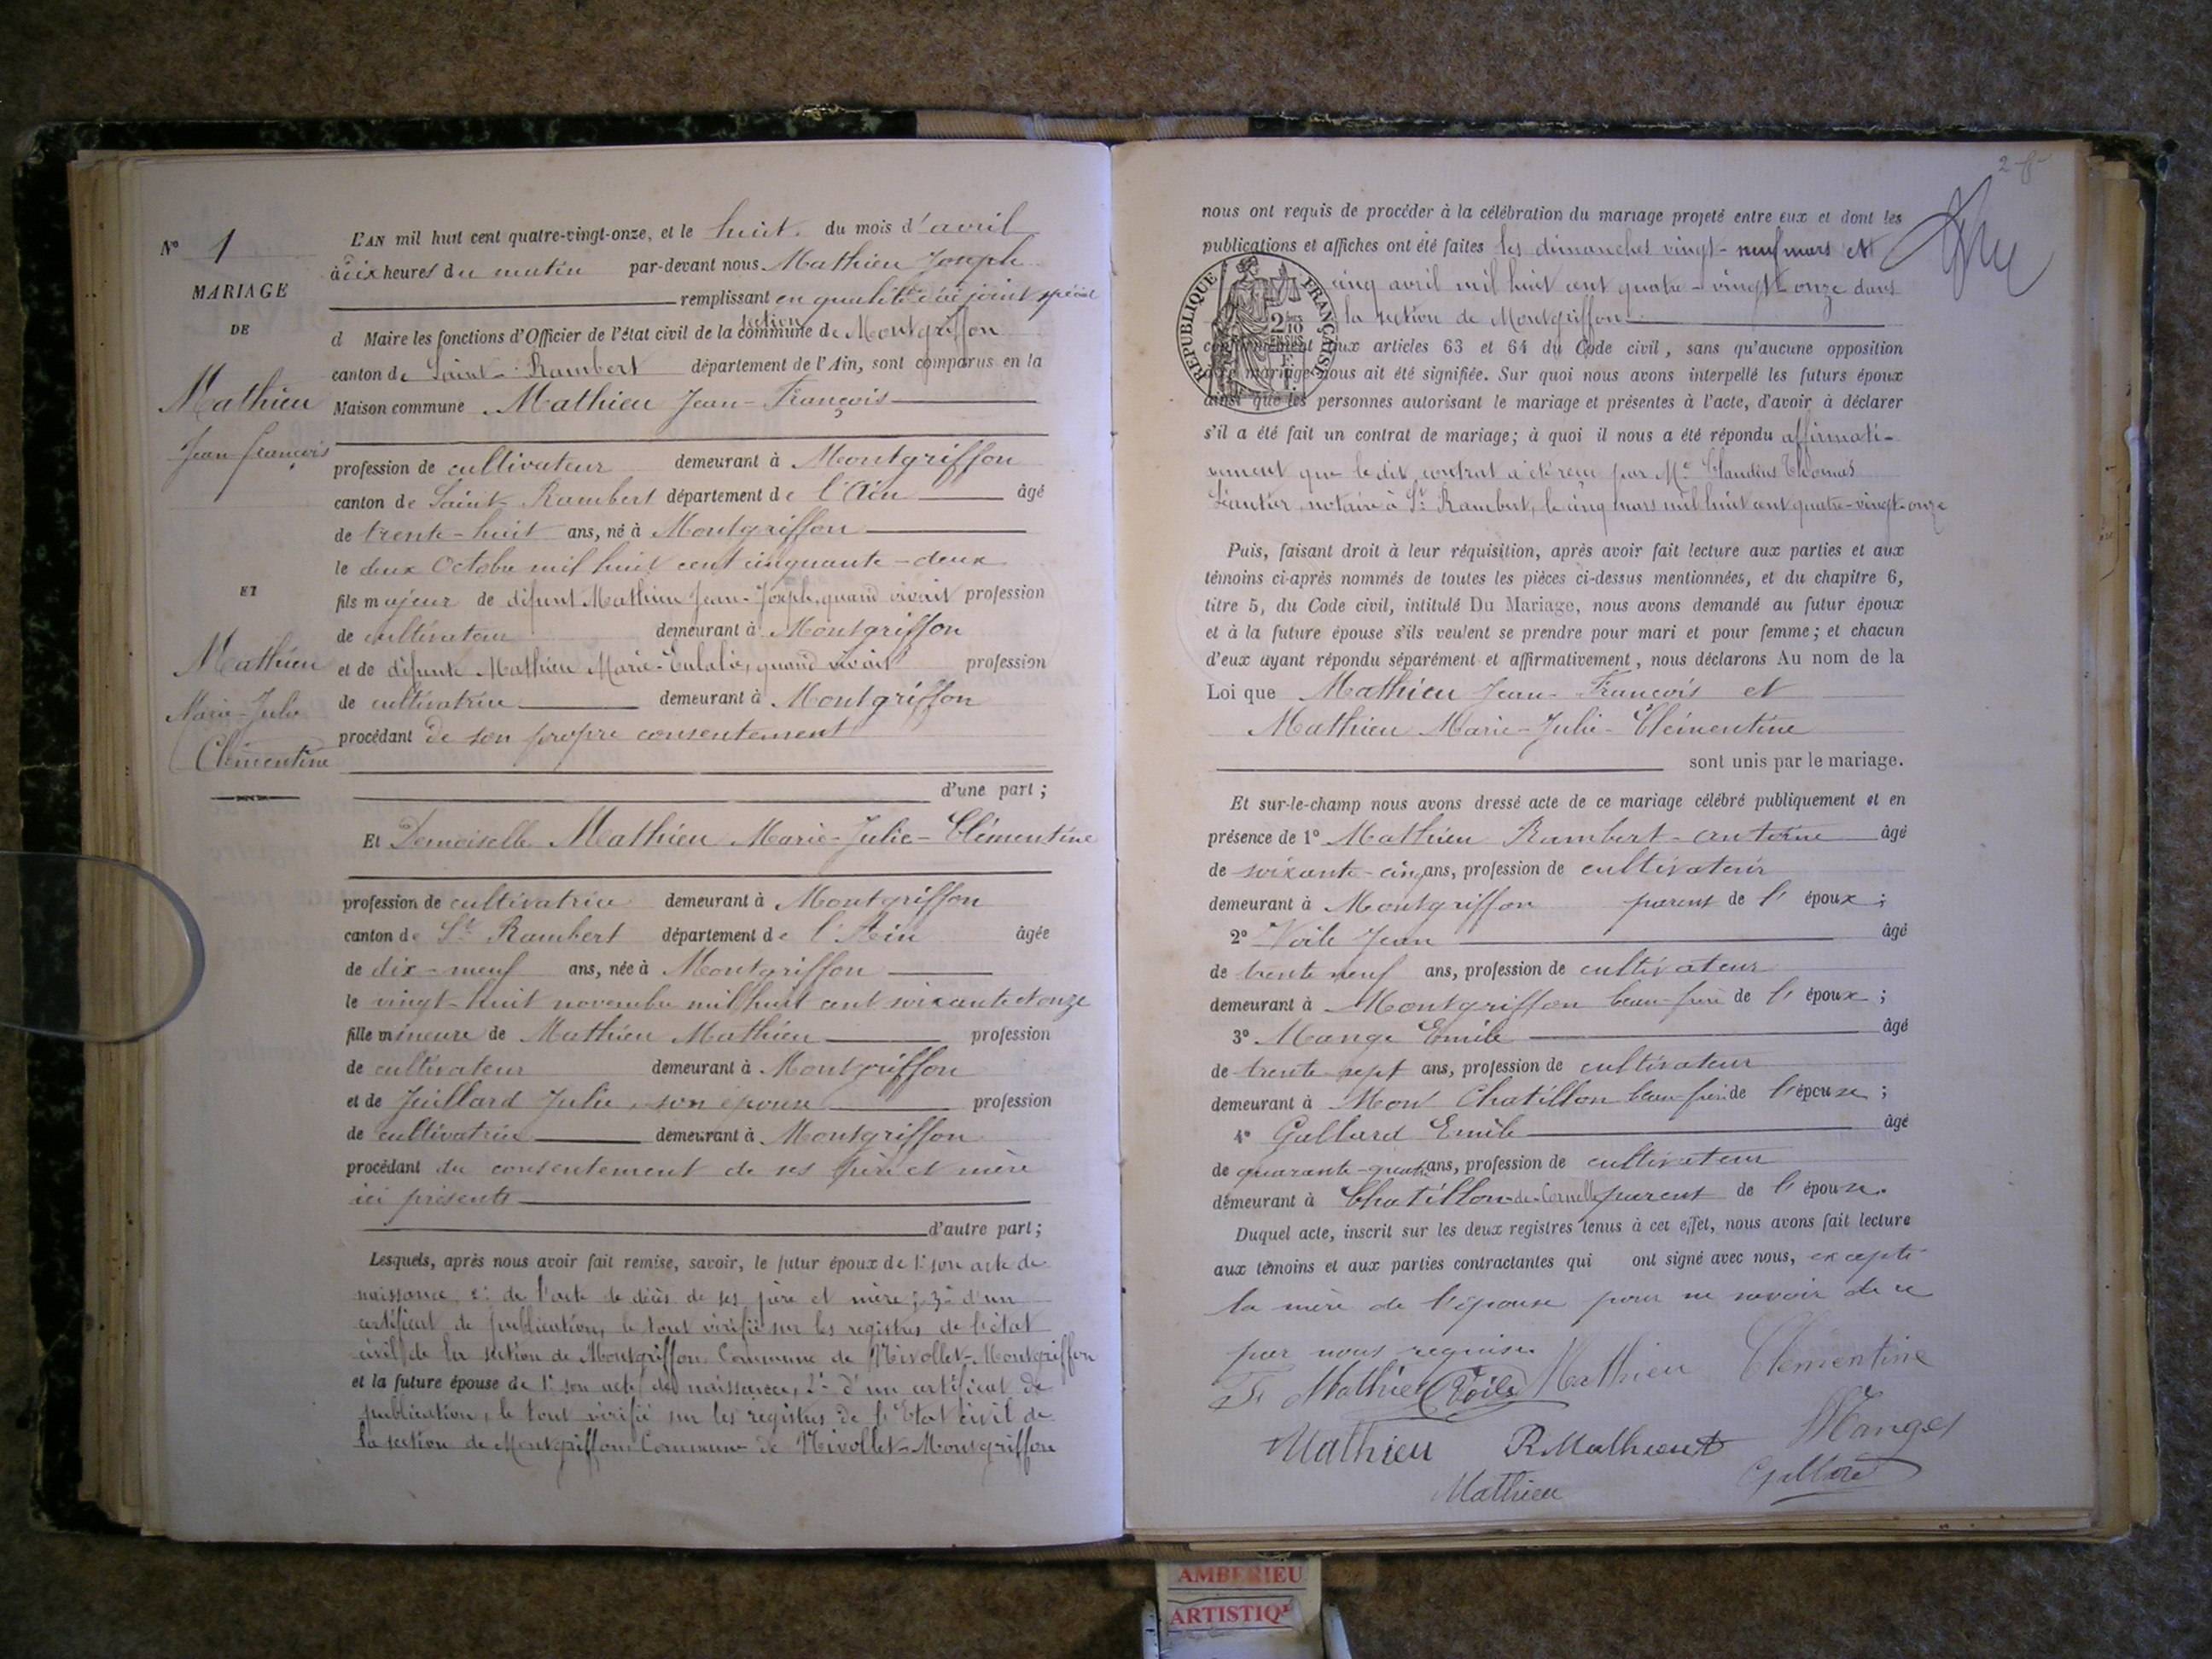 N° 1
MARIAGE
DE
Mathieu
Jean-François
ET
Mathieu
Marie-Julie
Clémentine
L'AN mil huit cent quatre-vingt-onze, et le huit du mois d'avril
à dix heures du matin par-devant nous Mathieu Joseph
remplissant en qualité d'adjoint spécial
d Maire les fonctions d'Officier de l'état civil de la commune section de Montgriffon
canton de Saint-Rambert département de l'Ain, sont comparus en la
Maison commune Mathieu Jean-François
profession de cultivateur demeurant à Montgriffon
canton de Saint-Rambert département de l'Ain âgé
de trente-huit ans, né à Montgriffon
le deux Octobre mil huit cent cinquante-deux
fils majeur de défunt Mathieu Jean-Joseph, quand vivait profession
de cultivateur demeurant à Montgriffon
et de défunte Mathieu Marie-Eulalie, quand vivait profession
de cultivatrice demeurant à Montgriffon
procédant de son propre consentement
d'une part;
Et Demoiselle Mathieu Marie-Julie-Clémentine
profession de cultivatrice demeurant à Montgriffon
canton de St Rambert département de l'Ain âgée
de dix-neuf ans, née à Montgriffon
le vingt-huit novembre mil huit cent soixante et onze
fille mineure de Mathieu Mathieu profession
de cultivateur demeurant à Montgriffon
et de Juillard Julie, son épouse profession
de cultivatrice demeurant à Montgriffon
procédant du consentement de ses père et mère
ici présents
d'autre part;
Lesquels, après nous avoir fait remise, savoir, le futur époux de 1° son acte de
naissance, 2° de l'acte de décès de ses père et mère; 3° d'un
certificat de publication, le tout vérifié sur les registres de l'état
civil de la section de Montgriffon Commune de Nivollet-Montgriffon
et la future épouse de 1° son acte de naissance, 2° d'un certificat de
publication, le tout vérifié sur les registres de l'Etat civil de
la section de Montgriffon Commune de Nivollet-Montgriffon
nous ont requis de procéder à la célébration du mariage projeté entre eux et dont les
publications et affiches ont été faites les dimanches vingt-neuf mars et
cinq avril mil huit cent quatre-vingt-onze dans
la section de Montgriffon
RÉPUBLIQUE FRANÇAISE
conformément aux articles 63 et 64 du Code civil, sans qu'aucune opposition
à ce mariage nous ait été signifiée. Sur quoi nous avons interpellé les futurs époux
ainsi que les personnes autorisant le mariage et présentes à l'acte, d'avoir à déclarer
s'il a été fait un contrat de mariage; à quoi il nous a été répondu affirmati-
vement que le dit contrat a été reçu par Me Claudius Thomas
notaire à St Rambert, le cinq mars mil huit cent quatre-vingt-onze
Puis, faisant droit à leur réquisition, après avoir fait lecture aux parties et aux
témoins ci-après nommés de toutes les pièces ci-dessus mentionnées, et du chapitre 6,
titre 5, du Code civil, intitulé Du Mariage, nous avons demandé au futur époux
et à la future épouse s'ils veulent se prendre pour mari et pour femme; et chacun
d'eux ayant répondu séparément et affirmativement, nous déclarons Au nom de la
Loi que Mathieu Jean-François et
Mathieu Marie-Julie-Clémentine
sont unis par le mariage.
Et sur-le-champ nous avons dressé acte de ce mariage célébré publiquement et en
présence de 1° Mathieu Rambert-Antoine âgé
de soixante-cinq ans, profession de cultivateur
demeurant à Montgriffon parent de l'époux;
2° Voile Jean âgé
de trente neuf ans, profession de cultivateur
demeurant à Montgriffon beau-frère de l'époux;
3° Mange Emile âgé
de trente-sept ans, profession de cultivateur
demeurant à Mont Chatillon beau-frère de l'épouse;
4° Gallard Emile âgé
de quarante-quatre ans, profession de cultivateur
demeurant à Chatillon-de-Cornelle parent de l'épouse.
Duquel acte, inscrit sur les deux registres tenus à cet effet, nous avons fait lecture
aux témoins et aux parties contractantes qui ont signé avec nous, excepté
la mère de l'épouse pour ne savoir de ce
par nous requise.
Mathieu Voile Mathieu Clémentine
Mathieu R Mathieu Manges
Mathieu
AMBERIEU
ARTISTIQ